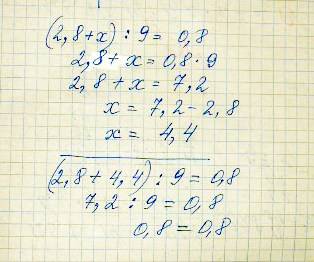 (2,8+x) : 9 = 0,8
2,8 + x = 0,8 · 9
2,8 + x = 7,2
x = 7,2 - 2,8
x = 4,4
(2,8 + 4,4) : 9 = 0,8
7,2 : 9 = 0,8
0,8 = 0,8